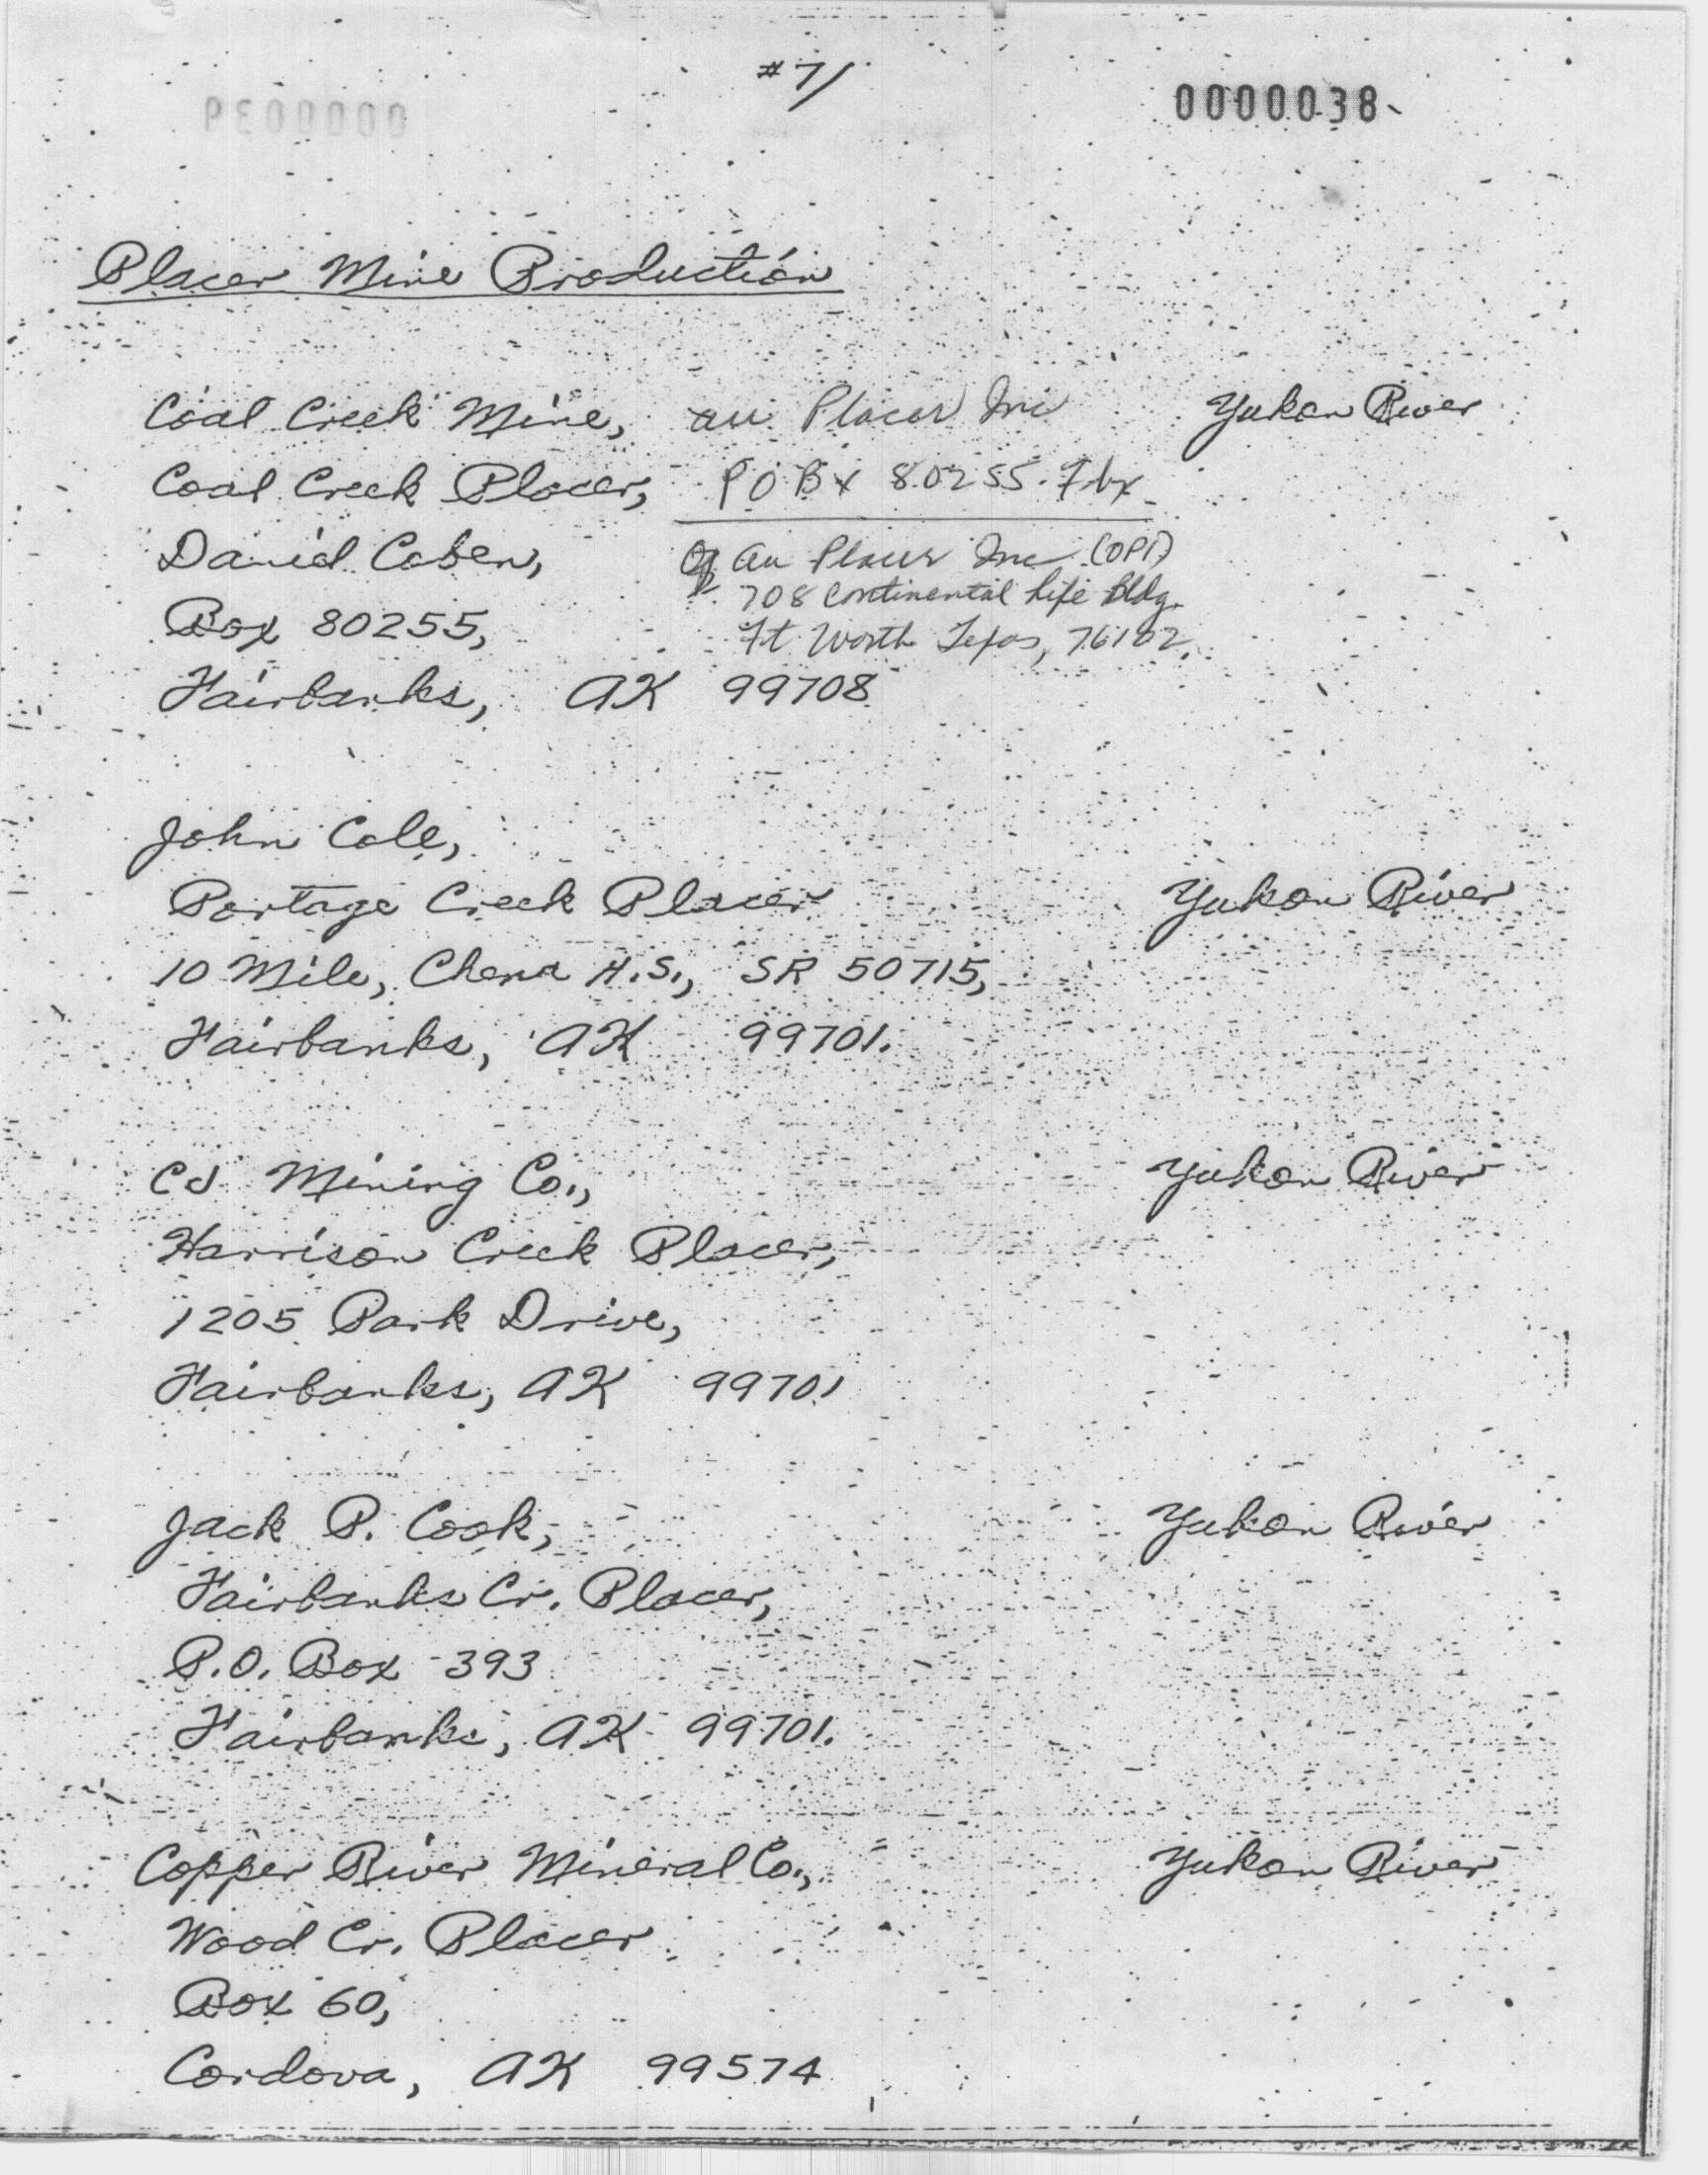 #7/
0000038
Placer Mine Production
Coal Creek Mine, au Placer Inc Yukon River
Coal Creek Placer, P O Bx 80255 Fbx
Daniel Coben, au Placer Inc (OPI)
708 Continental Life Bldg.
Box 80255, Ft Worth Texas, 76102.
Fairbanks, AK 99708
John Cole,
Portage Creek Placer Yukon River
10 Mile, Chena H.S., SR 50715,
Fairbanks, AK 99701.
CJ Mining Co., Yukon River
Harrison Creek Placer,
1205 Park Drive,
Fairbanks, AK 99701
Jack P. Cook, Yukon River
Fairbanks Cr. Placer,
P.O. Box 393
Fairbanks, AK 99701.
Copper River Mineral Co., Yukon River
Wood Cr. Placer
Box 60,
Cordova, AK 99574